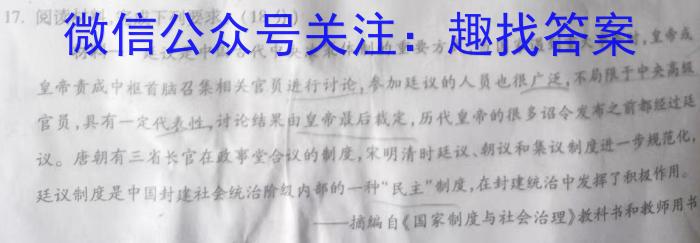 17. 阅读材料,完成下列要求。(18分)
微信公众号关注：趣找答案
材料一 廷议是中国古代中央决策体制的重要方 时,皇帝或
皇帝责成中枢首脑召集相关官员进行讨论,参加廷议的人员也很广泛,不局限于中央高级
官员,具有一定代表性,讨论结果由皇帝最后裁定,历代皇帝的很多诏令发布之前都经过廷
议。唐朝有三省长官在政事堂合议的制度,宋明清时廷议、朝议和集议制度进一步规范化,
廷议制度是中国封建社会统治阶级内部的一种“民主”制度,在封建统治中发挥了积极作用。
——摘编自《国家制度与社会治理》教科书和教师用书